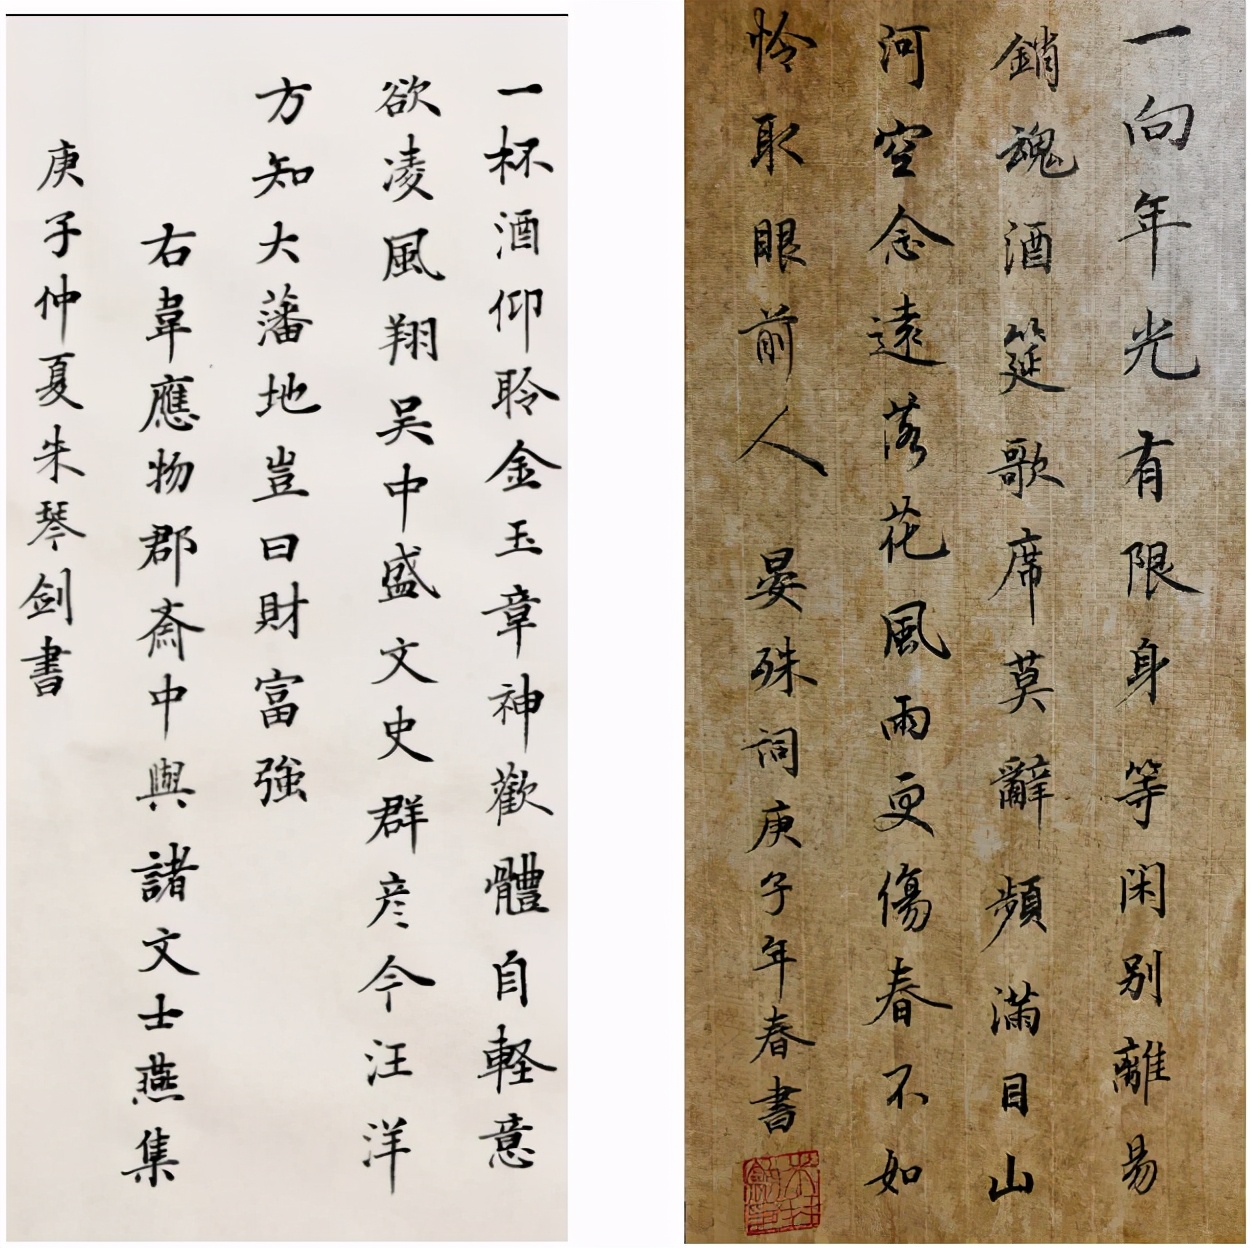 一杯酒仰聆金玉章神歡體自軽意
欲凌風翔吴中盛文史群彦今汪洋
方知大藩地豈曰財富強
右韋應物郡斎中與諸文士燕集
庚子仲夏朱琴剑書
一向年光有限身等闲别離易
銷魂酒筵歌席莫辭頻滿目山
河空念遠落花風雨更傷春不如
怜取眼前人 晏殊詞庚子年春書